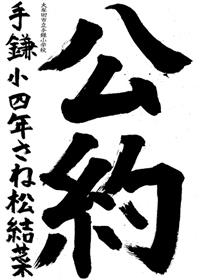 公約
大牟田市立手鎌小学校
手鎌小四年さね松結菜